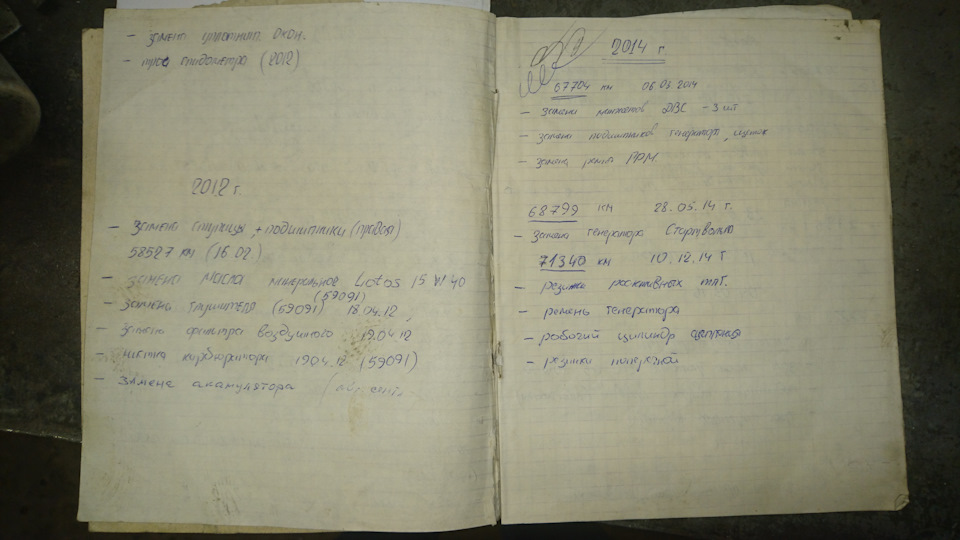 - замена уплотнит. окон.
- трос спидометра (2012)
2012 г.
- Замена ступица + подшипники (правая)
58527 км (16.02.)
- замена масла минеральное Lotos 15 W 40
(59091)
- замена глушителя (59091) 18.04.12,
- замена фильтра воздушного 19.04.12
- чистка карбюратора 19.04.12 (59091)
- замена акамулятора
2014 г.
67704 км 06.03.2014
- замена манжетов ДВС - 3 шт
- замена подшипников генератора, щеток
- замена ремня ГРМ.
68799 км 28.05.14 г.
- замена генератора Стартвольт
71340 км 10.12.14 г
- резинки реактивных тяг.
- ремень генератора
- робочий цилиндр
- резинки поперечной